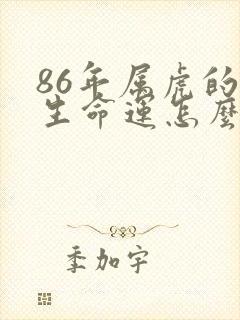 86年属虎的
生命运怎麼
季加宇